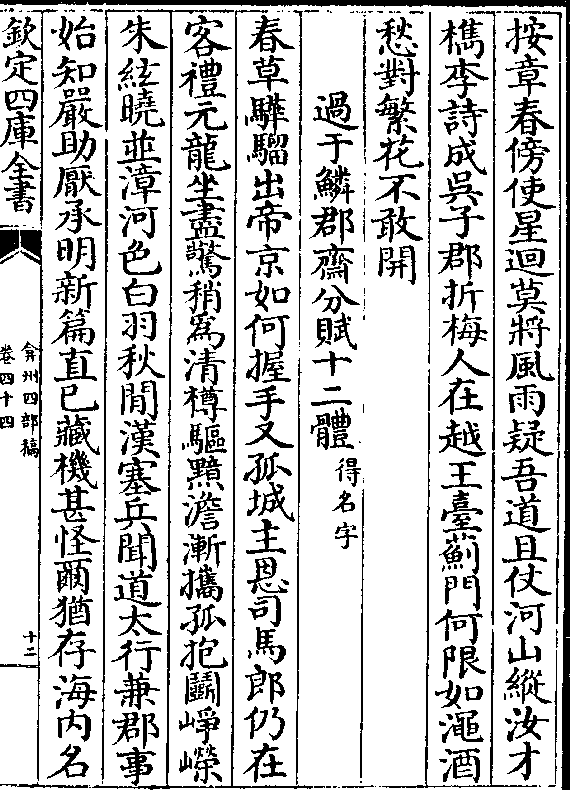 按章春傍使星迴莫將風雨疑吾道且仗河山縱汝才
檇李詩成吳子郡折梅人在越王臺薊門何限如澠酒
愁對繁花不敢開
過于鱗郡齋分賦十二體得名字
春草驊騮出帝京如何握手又孤城主恩司馬郎仍在
客禮元龍坐盡驚稍為清樽驅黯澹漸攜孤抱鬭崢嶸
朱絃曉並漳河色白羽秋閒漢塞兵聞道太行兼郡事
始知嚴助厭承明新篇直已藏機甚怪爾猶存海内名
欽定四庫全書
弇州四部稿
卷四十四
十二